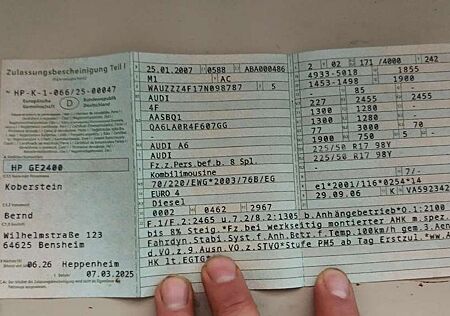 Zulassungsbescheinigung Teil I
HP-K-1-066/25-00047
Europäische Gemeinschaft
D
Bundesrepublik Deutschland
HP GE2400
Koberstein
Bernd
Wilhelmstraße 123
64625 Bensheim
06.26 Heppenheim
07.03.2025
25.01.2007 0588 ABA000486
M1 AC
WAUZZZ4F17N098787 5
AUDI
4F
AASBQ1
QA6LA0R4F607GG
AUDI A6
AUDI
Fz.z.Pers.bef.b. 8 Spl.
Kombilimousine
70/220/EWG*2003/76B/EG
EURO 4
Diesel
0002 0462 2967
2 02 171 /4000 242
4933-5018 1855
1453-1498 1900
- 85 -
227 2455 2455
1300 1280 -
1300 1280 -
77 3000 70
1900 750 5 -
225/50 R17 98Y
225/50 R17 98Y
- 7/-
e1*2001/116*0254*14
29.09.06 K
F.1/F.2:2465 u.7.2/8.2:1305 b.Anhängebetrieb*O.1:2100
bis 8% Steig.*Fz.bei werkseitig montierter AHK m.spez.
Fahrdyn.Stabi.Syst.f.Anh.Betr.f.Temp.100km/h gem.3.Aen
d.VO.z.9.Ausn.VO.z.STVO*Stufe PM5 ab Tag Erstzul.*ww.A
HK lt.EGTG